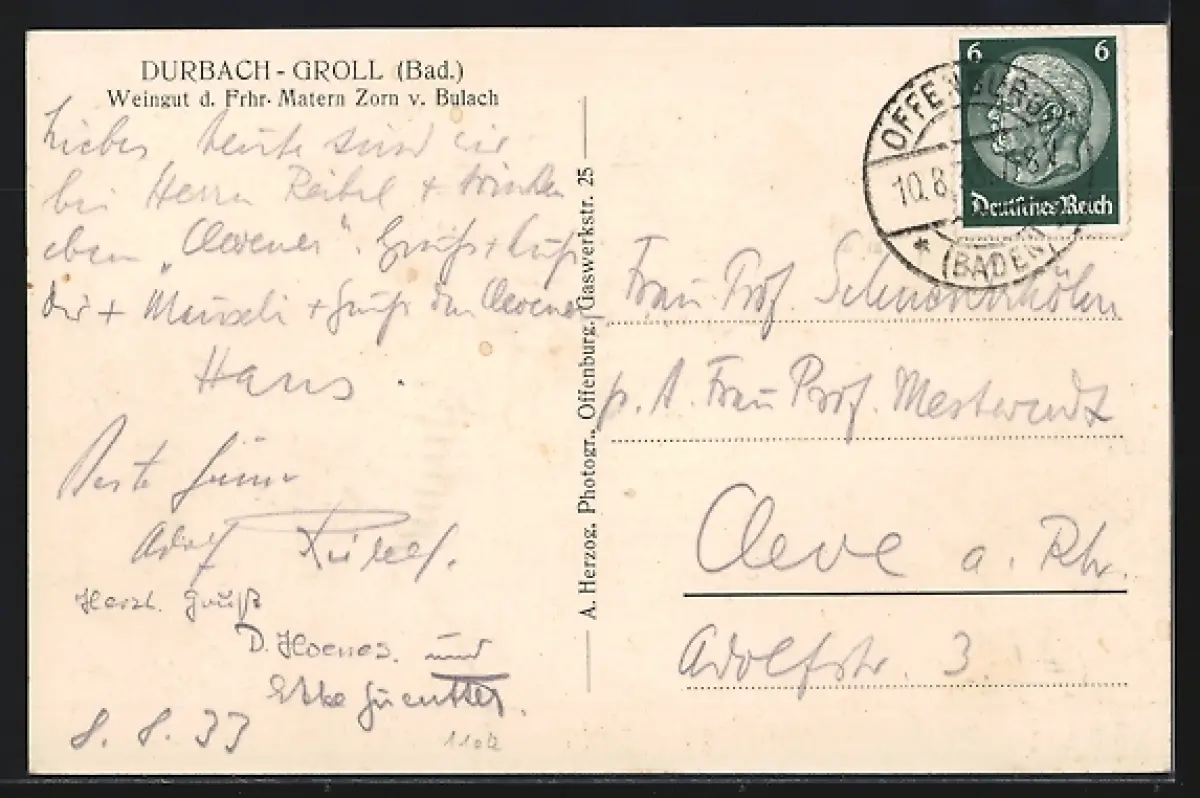 DURBACH - GROLL (Bad.)
Weingut d. Frhr. Matern Zorn v. Bulach
heute sind wir
bei Herrn Reibel + trinken
eben „Clevener“. Gruß + Kuß
Dir + Mausch + Grüß den Clevener
Hans.
Beste Grüße
Adolf
Herzl. Gruß
D. Hoenes. und
8. 8. 33
1102
A. Herzog, Photogr., Offenburg, Gaswerkstr. 25
6 6
Deutsches Reich
OFFENBURG
10.8.
* (BADEN)
Frau Prof. Schneiderhöhn
p. A. Frau Prof. Mestwerdt
Cleve a. Rh.
Adolfstr. 3.